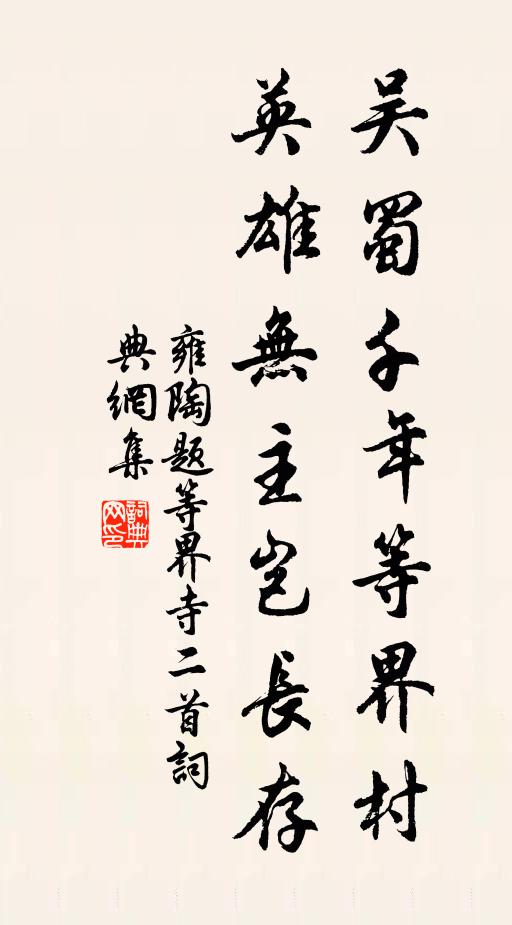 吴蜀千年等界村
英雄無主豈長存
雍陶題等界寺二首詞
典網集
詞典网印